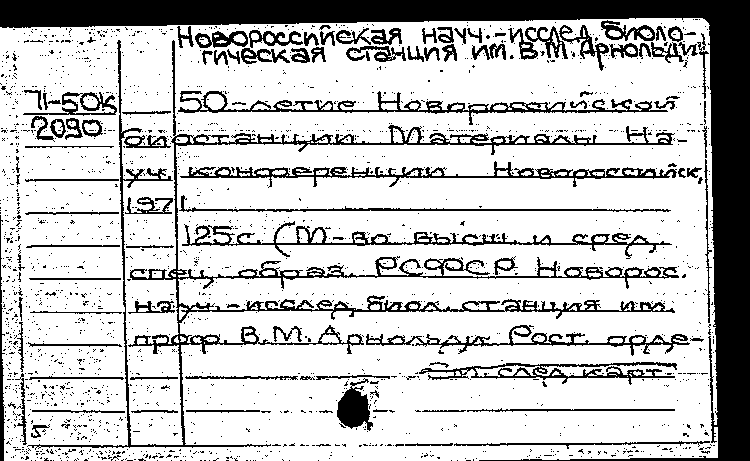 Новороссийская науч.-исслед. биоло-
гическая станция им. В.М. Арнольди
71-50к
50-летие Новороссийской
2090
биостанции. Материалы На-
уч. конференции. Новороссийск,
1971.
125 с. (М-во высш. и сред.
спец. образ. РСФСР. Новорос.
науч.-исслед. биол. станция им.
проф. В.М. Арнольди. Рост. орде-
См. след. карт.